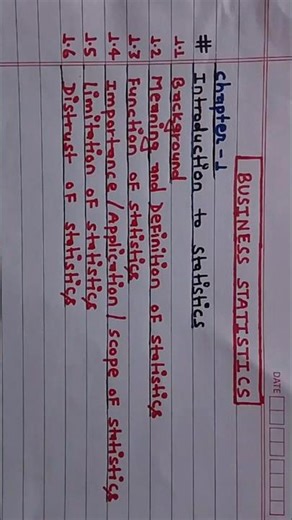 DATE
BUSINESS STATISTICS
chapter-1
# Introduction to statistics
1.1 Background
1.2 Meaning and Definition of statistics
1.3 Function of statistics
1.4 Importance/Application/scope of statistics
1.5 Limitation of statistics
1.6 Distrust of statistics